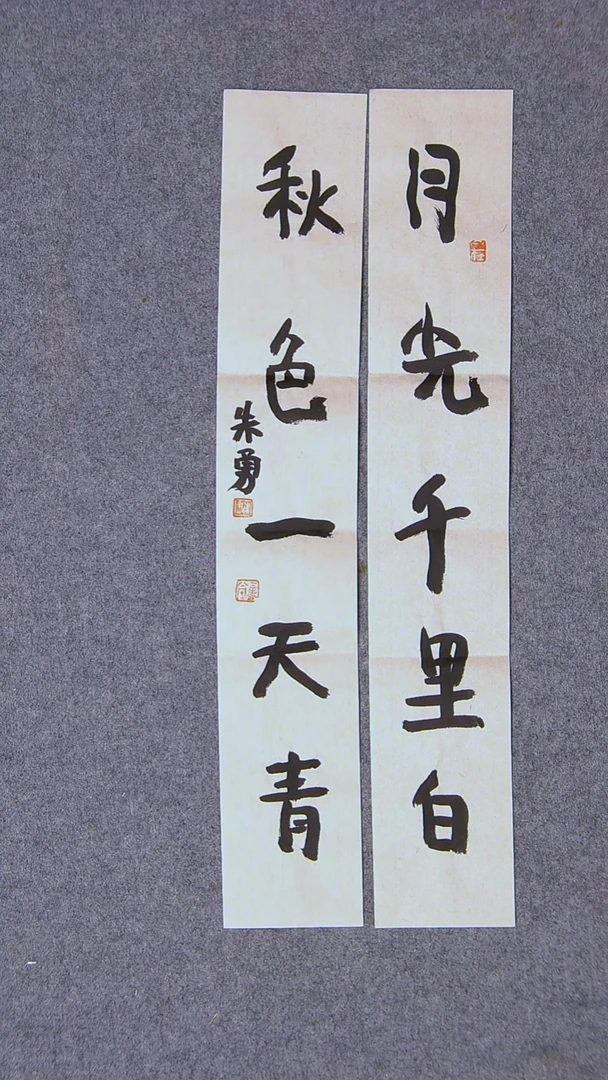 月光千里白
秋色一天青
朱勇